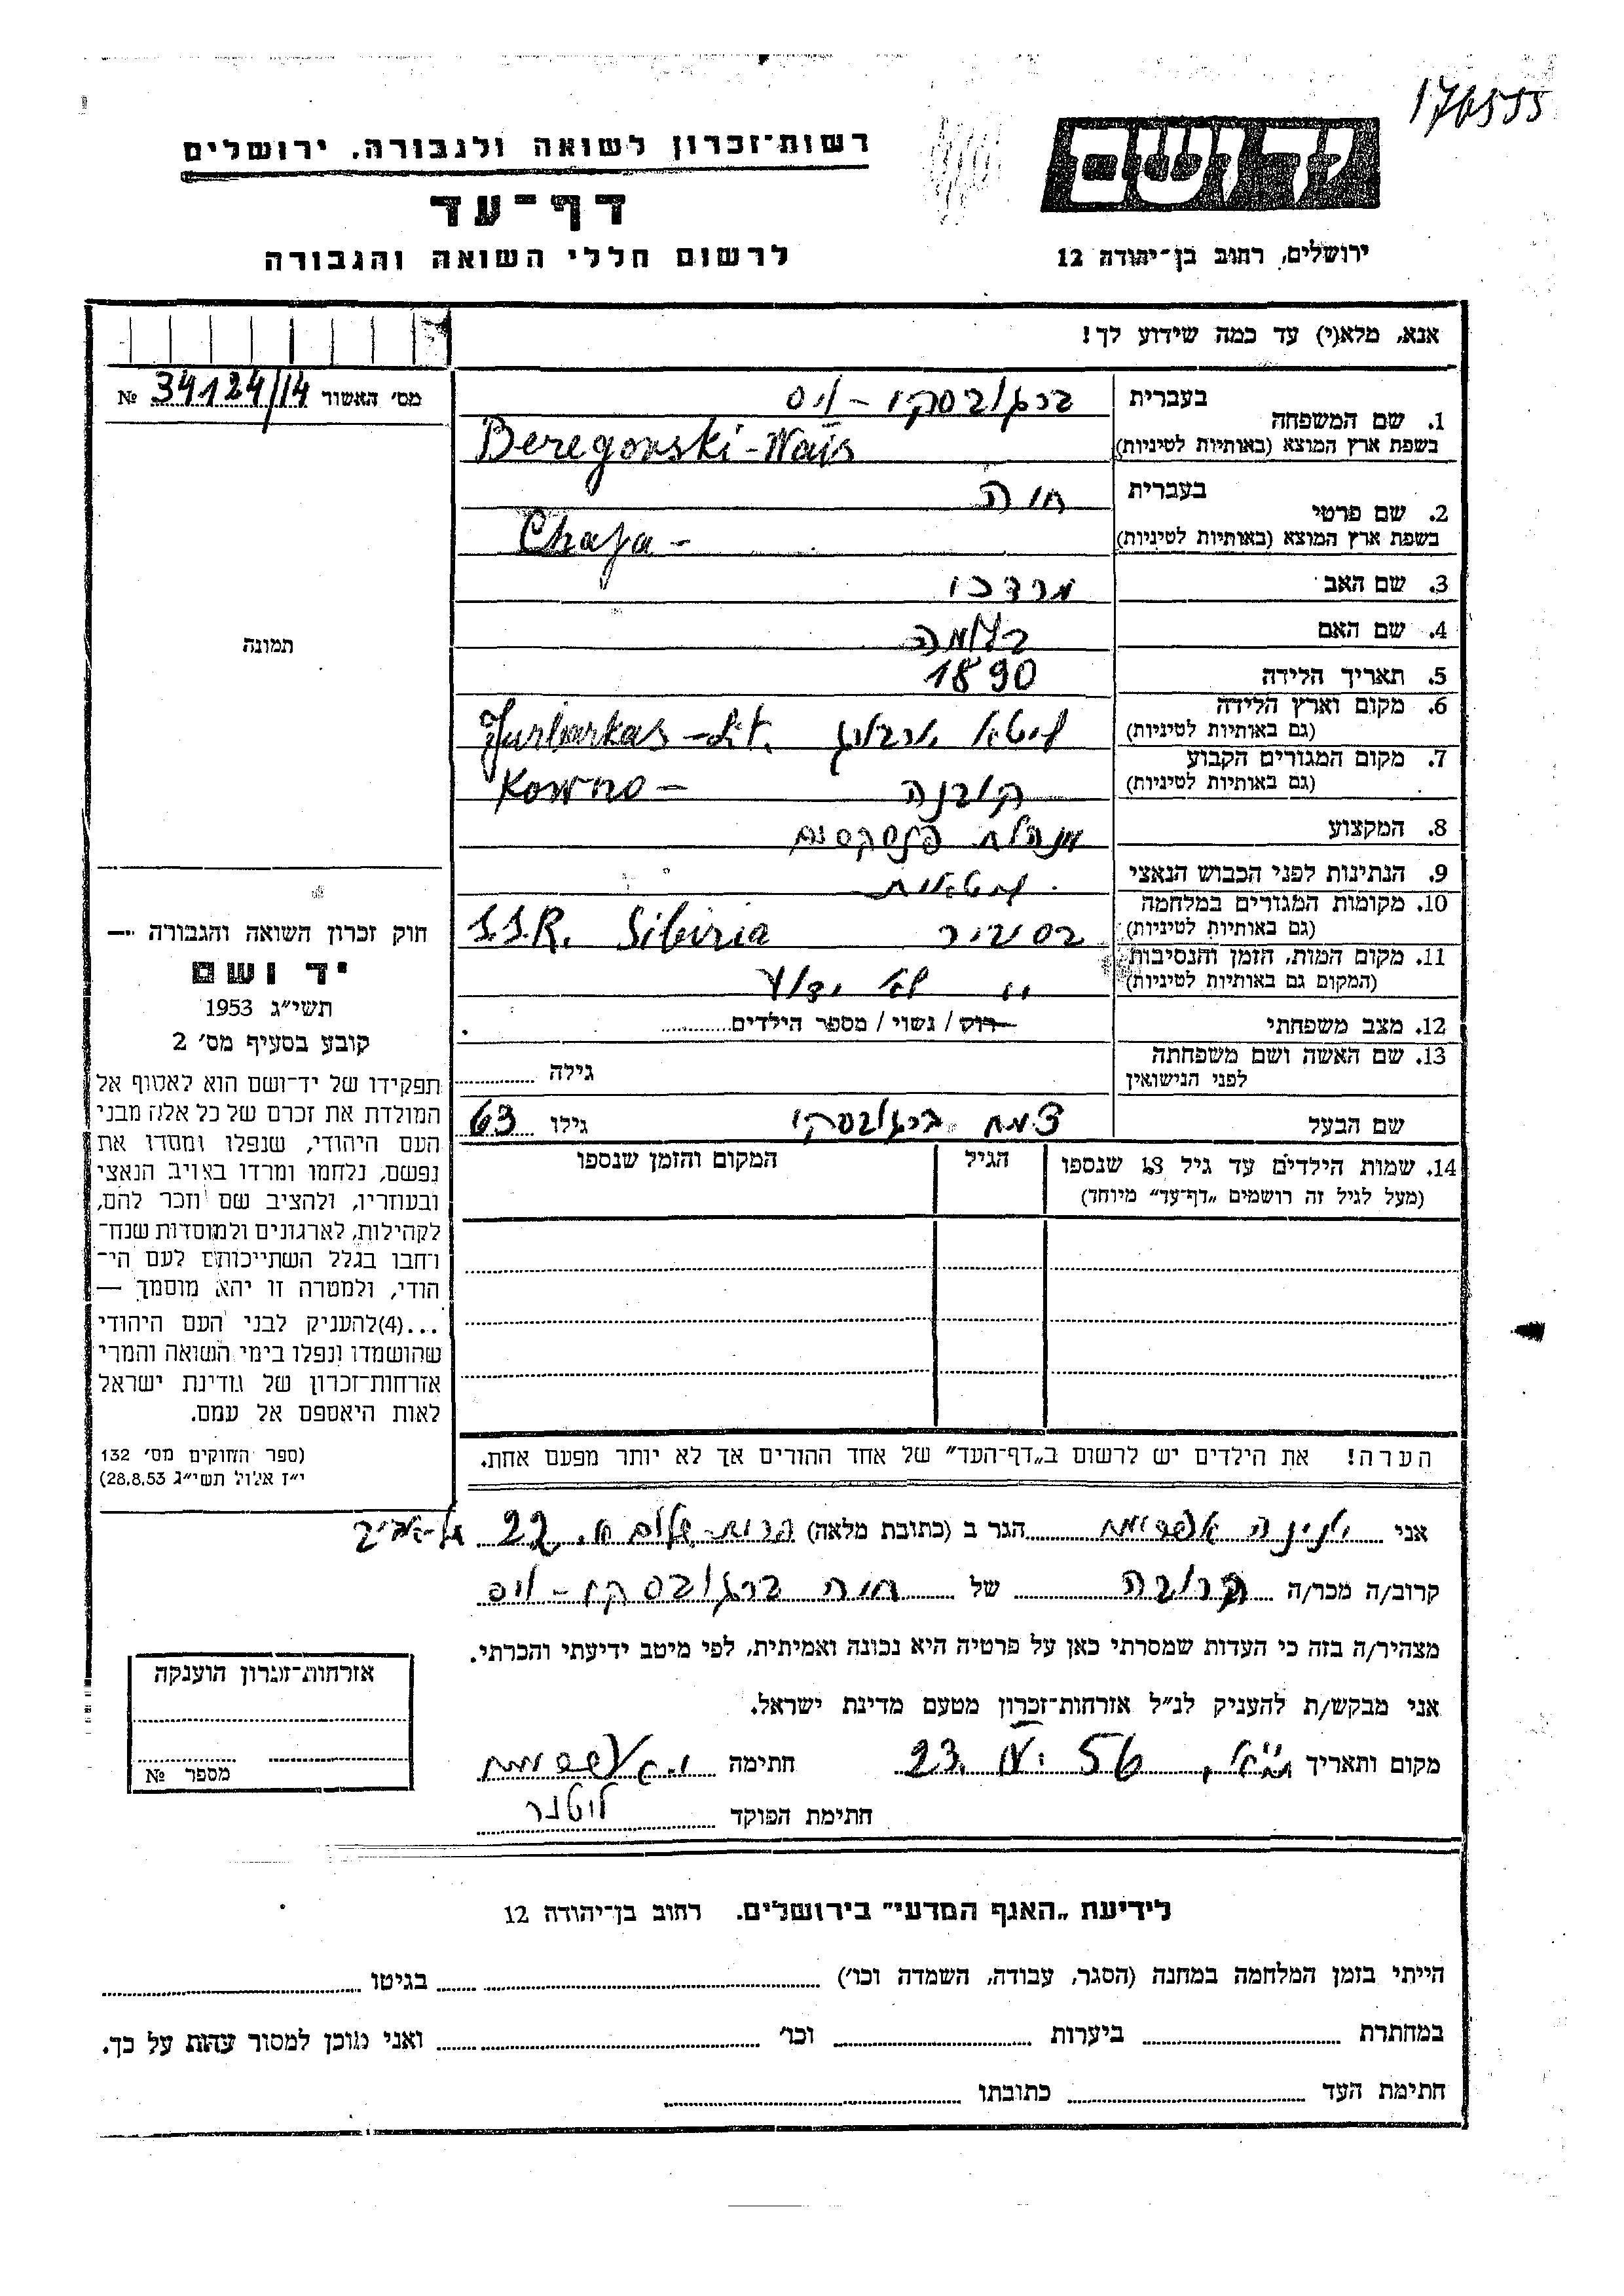 176555
רשות־זכרון לשואה ולגבורה, ירושלים
דף־עד
לרשום חללי השואה והגבורה
ידושם
ירושלים, רחוב בן־יהודה 12
אנא, מלא(י) עד כמה שידוע לך!
מס׳ האשור 34124/14 №
תמונה
1. שם המשפחה בעברית ברגובסקי - ויס
בשפת ארץ המוצא (באותיות לטיניות) Beregowski-Wajs
2. שם פרטי בעברית חיה
בשפת ארץ המוצא (באותיות לטיניות) Chaja -
3. שם האב מרדכי
4. שם האם
5. תאריך הלידה 1890
6. מקום וארץ הלידה
(גם באותיות לטיניות) ליטא יורבורג Jurbarkas - Lit.
7. מקום המגורים הקבוע
(גם באותיות לטיניות) קובנה Kowno -
8. המקצוע מנהלת
9. הנתינות לפני הכבוש הנאצי ליטאית
10. מקומות המגורים במלחמה
(גם באותיות לטיניות) בסיביר S.S.R. Sibiria
11. מקום המות, הזמן והנסיבות
(המקום גם באותיות לטיניות) " לא ידוע
12. מצב משפחתי רוק / נשוי / מספר הילדים
13. שם האשה ושם משפחתה
לפני הנישואין גילה
שם הבעל צמח ברגובסקי גילו 63
14. שמות הילדים עד גיל 18 שנספו הגיל המקום והזמן שנספו
(מעל לגיל זה רושמים „דף־עד״ מיוחד)
הערה! את הילדים יש לרשום ב„דף־העד״ של אחד ההורים אך לא יותר מפעם אחת.
חוק זכרון השואה והגבורה —
יד ושם
תשי״ג 1953
קובע בסעיף מס׳ 2
תפקידו של יד־ושם הוא לאסוף אל
המולדת את זכרם של כל אלה מבני
העם היהודי, שנפלו ומסרו את
נפשם, נלחמו ומרדו באויב הנאצי
ובעוזריו, ולהציב שם וזכר להם,
לקהילות, לארגונים ולמוסדות שנח־
רחבו בגלל השתייכותם לעם הי־
הודי, ולמטרה זו יהא מוסמך —
...(4)להעניק לבני העם היהודי
שהושמדו ונפלו בימי השואה והמרי
אזרחות־זכרון של מדינת ישראל
לאות היאספם אל עמם.
(ספר החוקים מס׳ 132
י״ז אלול תשי״ג 28.8.53)
אני הגר ב (כתובת מלאה) 22 תל-אביב
קרוב/ה מכר/ה קרובה של חיה ברגובסקי - ויס
מצהיר/ה בזה כי העדות שמסרתי כאן על פרטיה היא נכונה ואמיתית, לפי מיטב ידיעתי והכרתי.
אני מבקש/ת להעניק לנ״ל אזרחות־זכרון מטעם מדינת ישראל.
מקום ותאריך 23 56 חתימה
חתימת הפוקד
אזרחות־זכרון הוענקה
מספר №
לידיעת „האגף המדעי״ בירושלים. רחוב בן־יהודה 12
הייתי בזמן המלחמה במחנה (הסגר, עבודה, השמדה וכו׳) בגיטו
במחתרת ביערות וכו׳ ואני מוכן למסור עדות על כך.
חתימת העד כתובתו